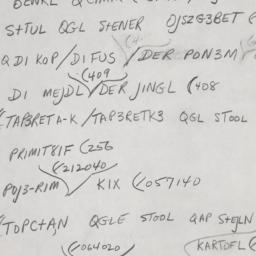 S+TUL QGL S+ENER OJSZG3BET
Q DI KOP/DI FUS /DER PON3M
(409
DI MEJDL/DER JINGL (408
TAP3RETA-K/TAP3RETK3 QGL STOOL
PRIMITIF (256
(212040
POJ3-RIM KIX (057140
TOPC+AN QGLE STOOL QAP S+EJLN
(064020 KARTOFL